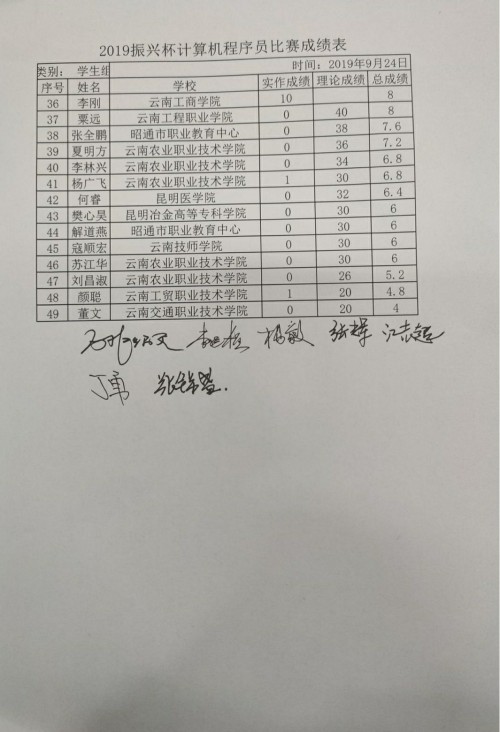 2019振兴杯计算机程序员比赛成绩表
类别: 学生组 时间: 2019年9月24日
序号 姓名 学校 实作成绩 理论成绩 总成绩
36 李刚 云南工商学院 10 8
37 粟远 云南工程职业学院 0 40 8
38 张全鹏 昭通市职业教育中心 0 38 7.6
39 夏明方 云南农业职业技术学院 0 36 7.2
40 李林兴 云南农业职业技术学院 0 34 6.8
41 杨广飞 云南农业职业技术学院 1 30 6.8
42 何睿 昆明医学院 0 32 6.4
43 樊心昊 昆明冶金高等专科学院 0 30 6
44 解道燕 昭通市职业教育中心 0 30 6
45 寇顺宏 云南技师学院 0 30 6
46 苏江华 云南农业职业技术学院 0 30 6
47 刘昌淑 云南农业职业技术学院 0 26 5.2
48 颜聪 云南工贸职业技术学院 1 20 4.8
49 董文 云南交通职业技术学院 0 20 4
杨敏 张辉 江志超
丁勇